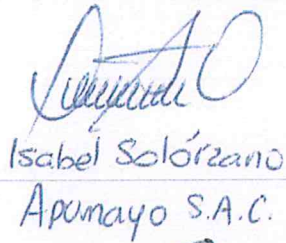 Isabel Solórzano
Apumayo S.A.C.